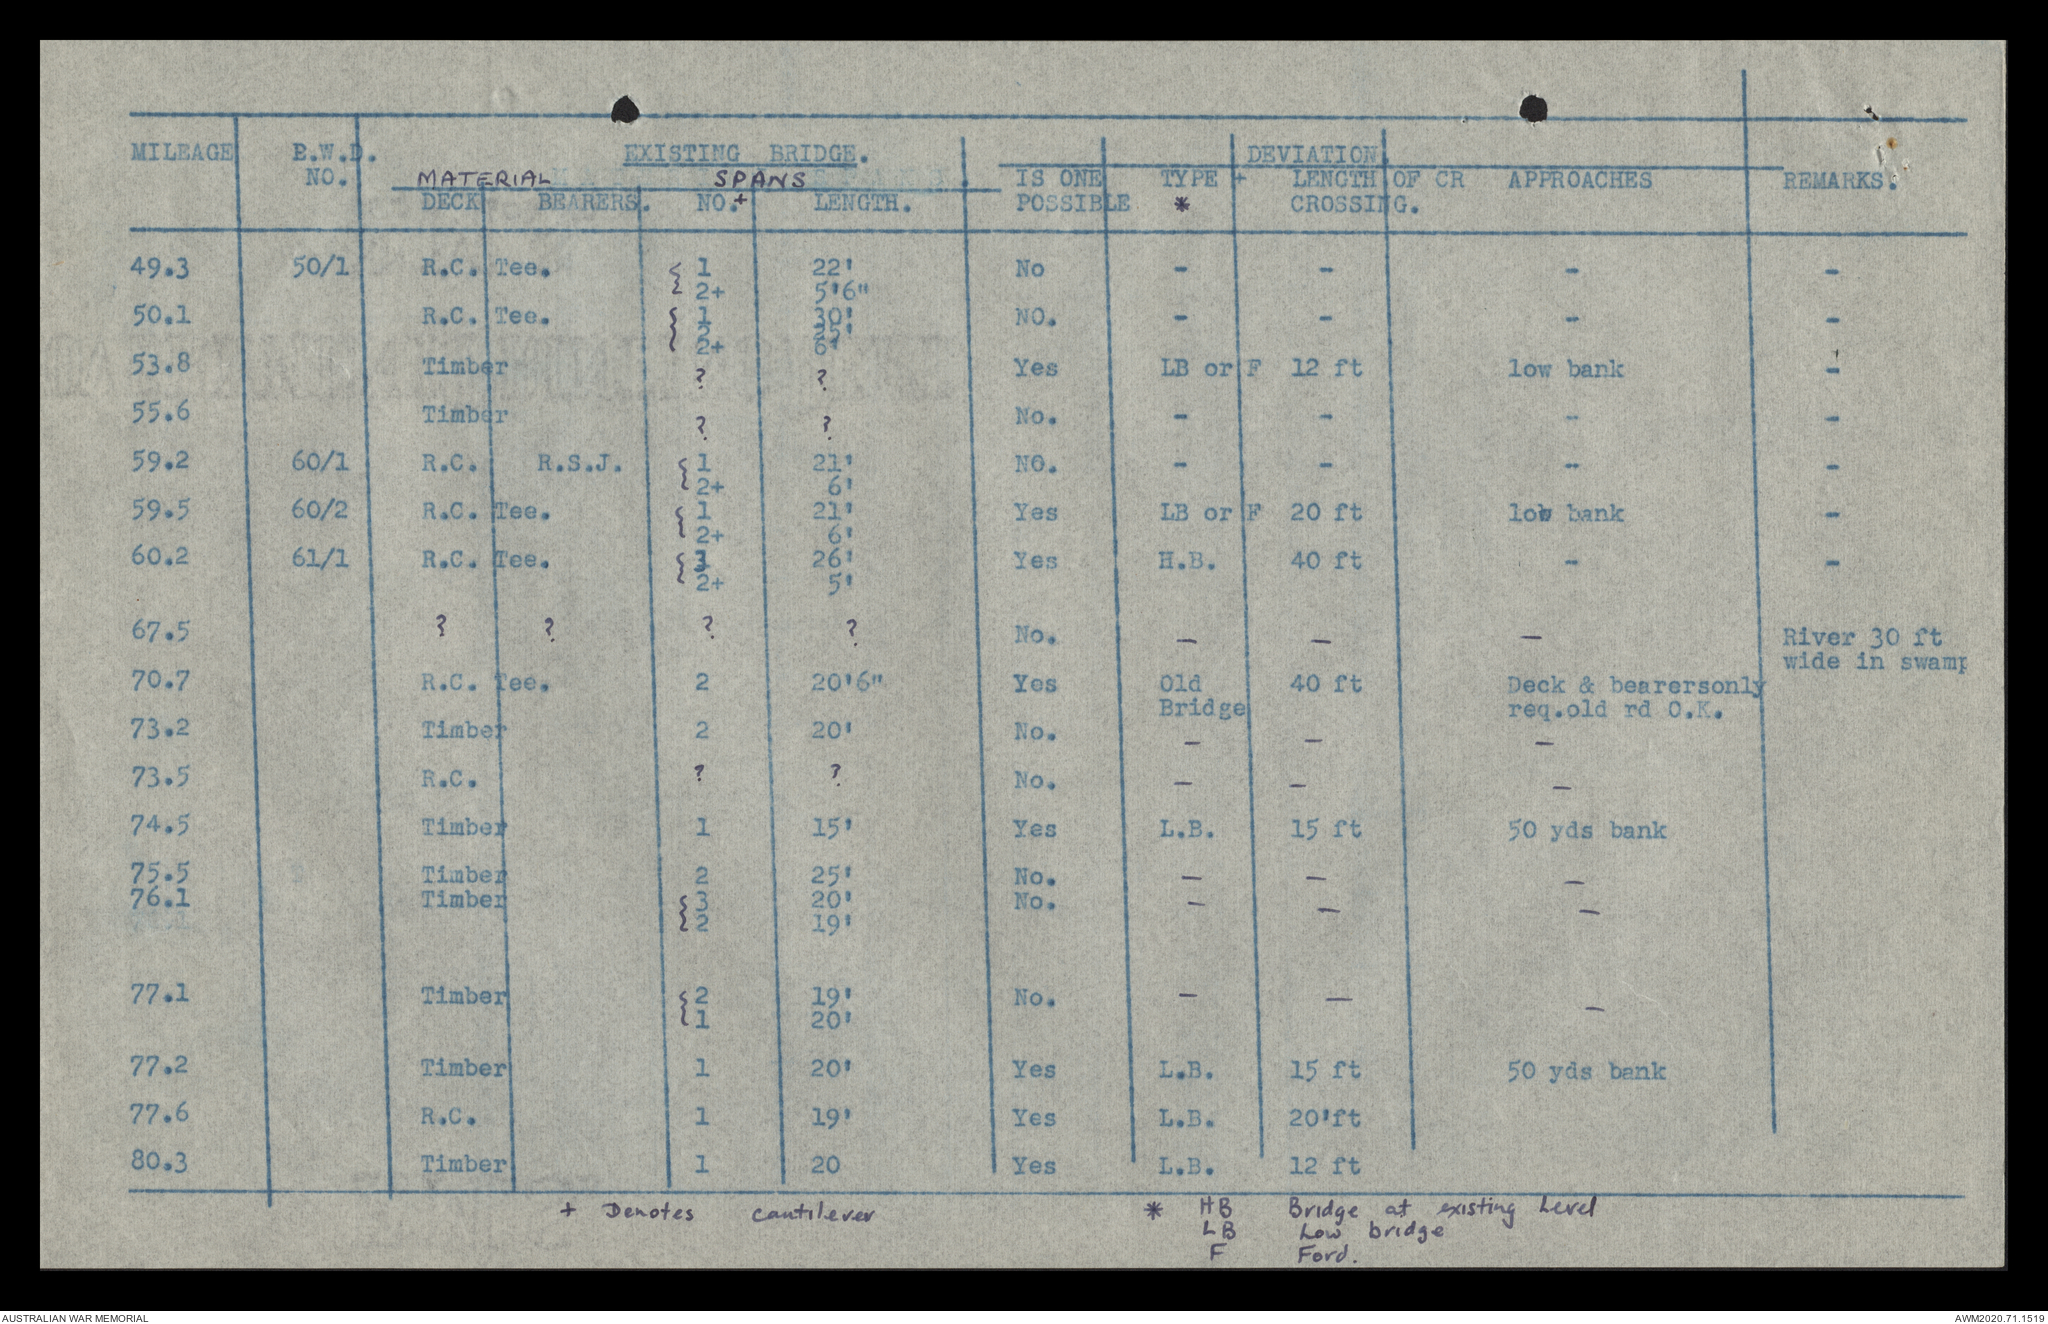 MILEAGE P.W.D. EXISTING BRIDGE. DEVIATION.
NO. MATERIAL SPANS IS ONE TYPE + LENGTH OF CR APPROACHES REMARKS.
DECK BEARERS. NO.+ LENGTH. POSSIBLE * CROSSING.
49.3 50/1 R.C. Tee. { 1 22' No - - - -
2+ 5'6"
50.1 R.C. Tee. { 1 30' NO. - - - -
2 25'
2+ 6'
53.8 Timber ? ? Yes LB or F 12 ft low bank -
55.6 Timber ? ? No. - - - -
59.2 60/1 R.C. R.S.J. { 1 21' NO. - - - -
2+ 6'
59.5 60/2 R.C. Tee. { 1 21' Yes LB or F 20 ft low bank -
2+ 6'
60.2 61/1 R.C. Tee. { 26' Yes H.B. 40 ft - -
2+ 5'
67.5 ? ? ? ? No. - - - River 30 ft
wide in swamp
70.7 R.C. Tee. 2 20'6" Yes Old 40 ft Deck & bearersonly
Bridge req.old rd O.K.
73.2 Timber 2 20' No. - - -
73.5 R.C. ? ? No. - - -
74.5 Timber 1 15' Yes L.B. 15 ft 50 yds bank
75.5 Timber 2 25' No. - - -
76.1 Timber { 3 20' No. - - -
2 19'
77.1 Timber { 2 19' No. - - -
1 20'
77.2 Timber 1 20' Yes L.B. 15 ft 50 yds bank
77.6 R.C. 1 19' Yes L.B. 20'ft
80.3 Timber 1 20 Yes L.B. 12 ft
+ Denotes cantilever * HB Bridge at existing Level
LB Low bridge
F Ford.
AUSTRALIAN WAR MEMORIAL AWM2020.71.1519